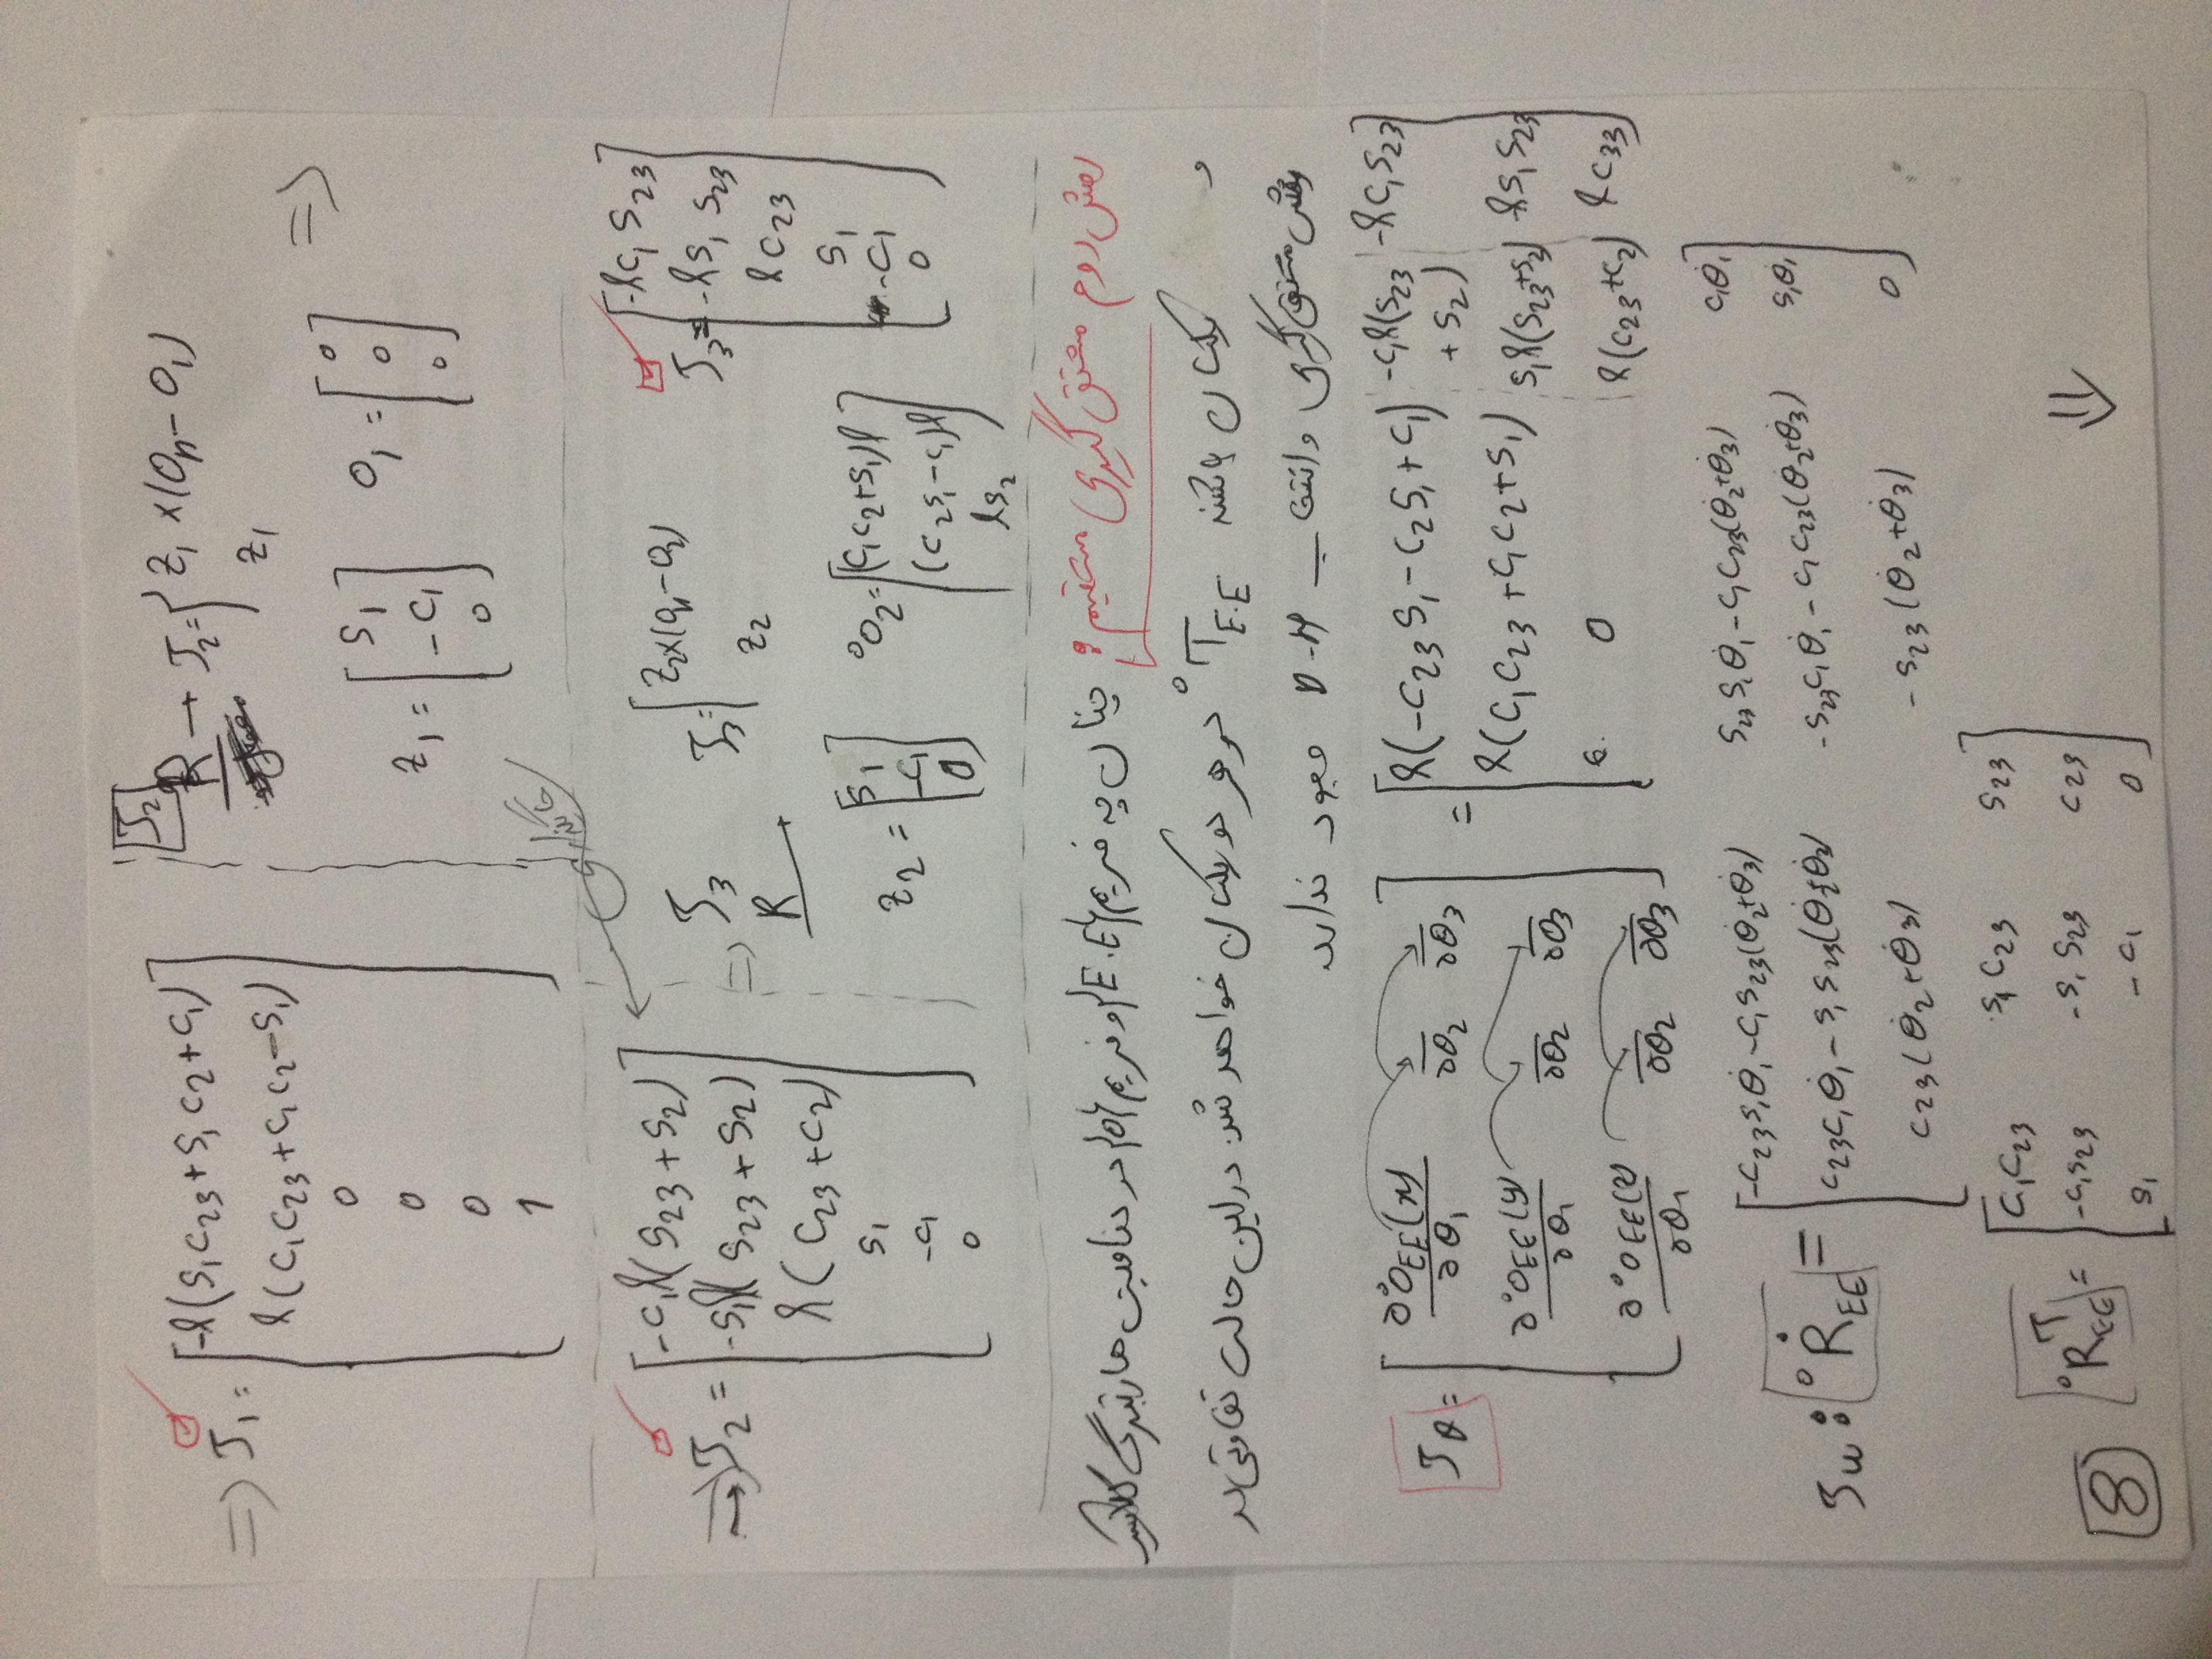 ⇒ J₁ = [ -l(s₁c₂₃+s₁c₂+c₁)
l(c₁c₂₃+c₁c₂-s₁)
0
0
0
1 ]
J₂
R → J₂ = { z₁×(Oₙ-O₁)
z₁
z₁ = [ s₁ -c₁ 0 ] O₁ = [ 0 0 0 ] ⇒
جاگذاری
⇒ J₂ = [ -c₁l(s₂₃+s₂)
-s₁l(s₂₃+s₂)
l(c₂₃+c₂)
s₁
-c₁
0 ]
⇒ J₃
R → J₃ = [ z₂×(Oₙ-O₂)
z₂
z₂ = [ s₁ -c₁ 0 ] ⁰O₂ = [ (c₁c₂+s₁)l (c₂s₁-c₁)l ls₂ ]
J₃ = [ -lc₁s₂₃
-ls₁s₂₃
lc₂₃
s₁
-c₁
0 ]
روش دوم مشتق گیری مستقیم: چنان چه فریم {E.E} و فریم {0} در دنافیت هارتنبرگ کلاسیک
و یکسان باشند ⁰T_E.E در هر دو یکسان خواهد شد در این حالت تفاوتی در
روش مشتق گیری و انتخاب D-H وجود ندارد
J_θ = [ ∂⁰O_EE(x)/∂θ₁ /∂θ₂ /∂θ₃
∂⁰O_EE(y)/∂θ₁ /∂θ₂ /∂θ₃
∂⁰O_EE(z)/∂θ₁ /∂θ₂ /∂θ₃ ]
= [ l(-c₂₃s₁-c₂s₁+c₁) -c₁l(s₂₃+s₂) -lc₁s₂₃
l(c₁c₂₃+c₁c₂+s₁) s₁l(s₂₃+s₂) -ls₁s₂₃
0 l(c₂₃+c₂) lc₃₃ ]
J_w : ⁰Ṙ_EE = [ -c₂₃s₁θ̇₁-c₁s₂₃(θ̇₂+θ̇₃) s₂₃s₁θ̇₁-c₁c₂₃(θ̇₂+θ̇₃) c₁θ̇₁
c₂₃c₁θ̇₁-s₁s₂₃(θ̇₂+θ̇₃) -s₂₃c₁θ̇₁-c₁c₂₃(θ̇₂+θ̇₃) s₁θ̇₁
c₂₃(θ̇₂+θ̇₃) -s₂₃(θ̇₂+θ̇₃) 0 ]
⁰R_EE^T = [ c₁c₂₃ s₁c₂₃ s₂₃
-c₁s₂₃ -s₁s₂₃ c₂₃
s₁ -c₁ 0 ]
⇓
8